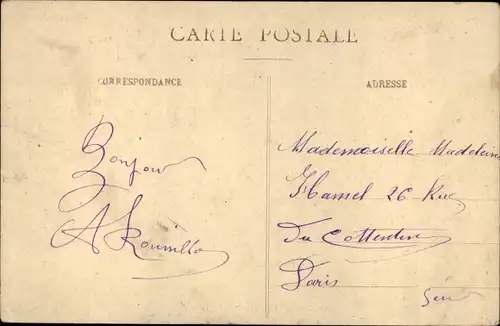 CARTE POSTALE
CORRESPONDANCE
ADRESSE
Bonjour
Mademoiselle Madeleine
Hamel 26 Rue
Du Cottentin
Paris